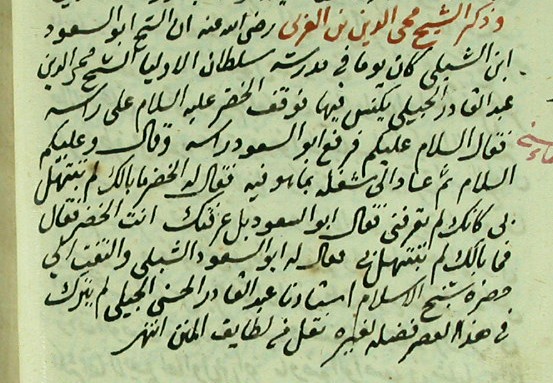 وذكر الشيخ محى الدين بن العربى رضى الله عنه ان الشيخ ابو السعود
ابن الشبلى كان يوما فى مدرسة سلطان الاوليا الشيخ محى الدين
عبد القادر الجيلى يكنس فيها فوقف الخضر عليه السلام على راسه
فقال السلام عليكم فرفع ابو السعود راسه وقال وعليكم
السلام ثم عاد الى شغله بما هو فيه فقال له الخضر ما بالك لم تنتهل
بى كانك لم تعرفنى فقال ابو السعود بل عرفتك انت الخضر فقال
فما بالك لم تنتهل بى فقال له ابو السعود الشبلى والتفت الى
حضرة شيخ الاسلام استادنا عبد القادر الحسنى الجيلى لم يترك
فى هذا العصر فضله لغيره نقل من لطايف المنن انتهى